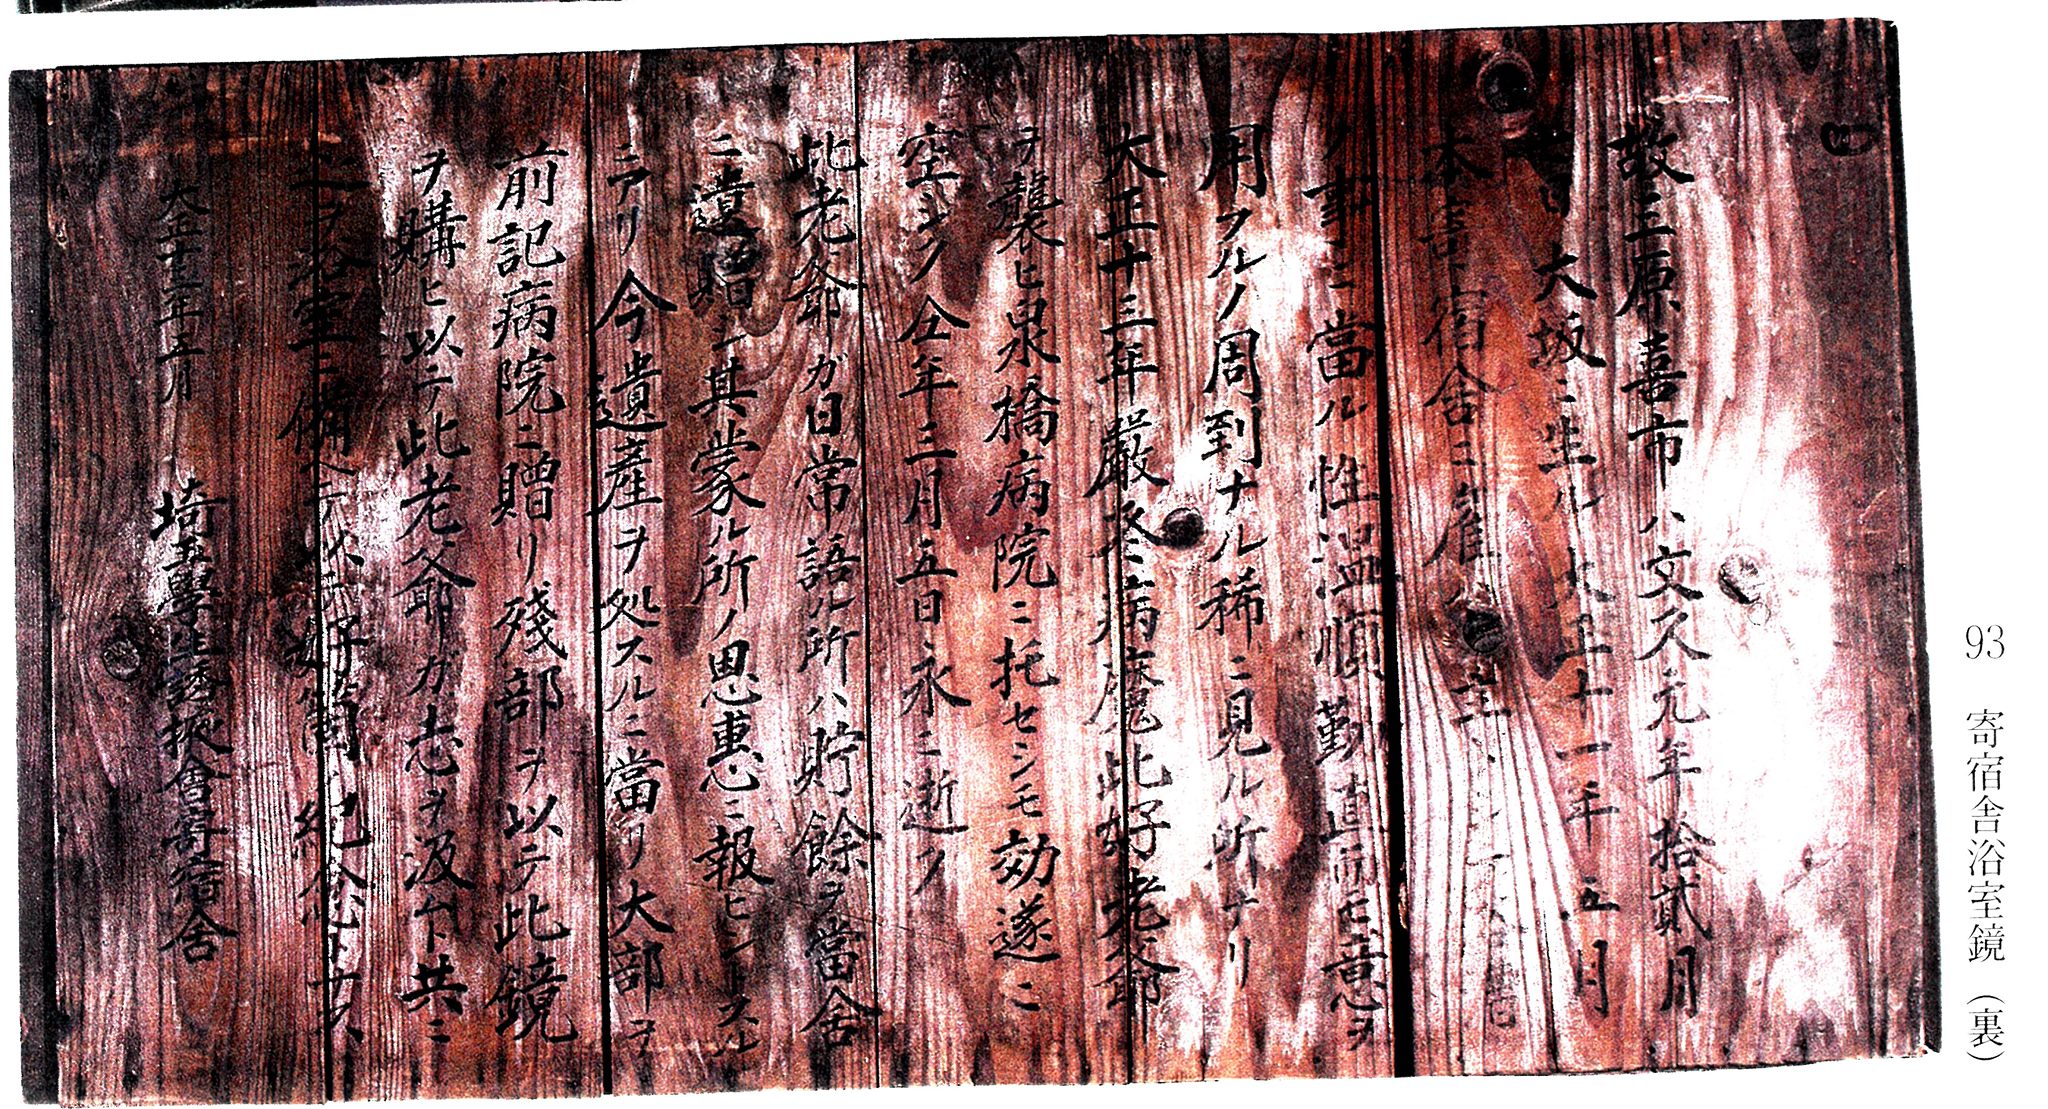 故三原喜市ハ文久元年拾貳月
日大坂ニ生ル大正十一年五月
本寄宿舎ニ雇
ノ事ニ當ル性温順勤直而モ意ヲ
用フルノ周到ナル稀ニ見ル所ナリ
大正十三年嚴冬病魔此好老爺
ヲ襲ヒ泉橋病院ニ托セシモ効遂ニ
空シク仝年三月五日永ニ逝ク
此老爺ガ日常語ル所ハ貯餘ヲ當舎
ニ遺贈シ其蒙ル所ノ恩惠ニ報ヒントスル
ニアリ今遺産ヲ処スルニ當リ大部ヲ
前記病院ニ贈リ殘部ヲ以テ此鏡
ヲ購ヒ以テ此老爺ガ志ヲ汲ムト共ニ
之ヲ浴室ニ備ヘテ以テ好箇ノ紀念トナス
大正十三年五月
埼玉學生誘掖會寄宿舎
93 寄宿舎浴室鏡（裏）